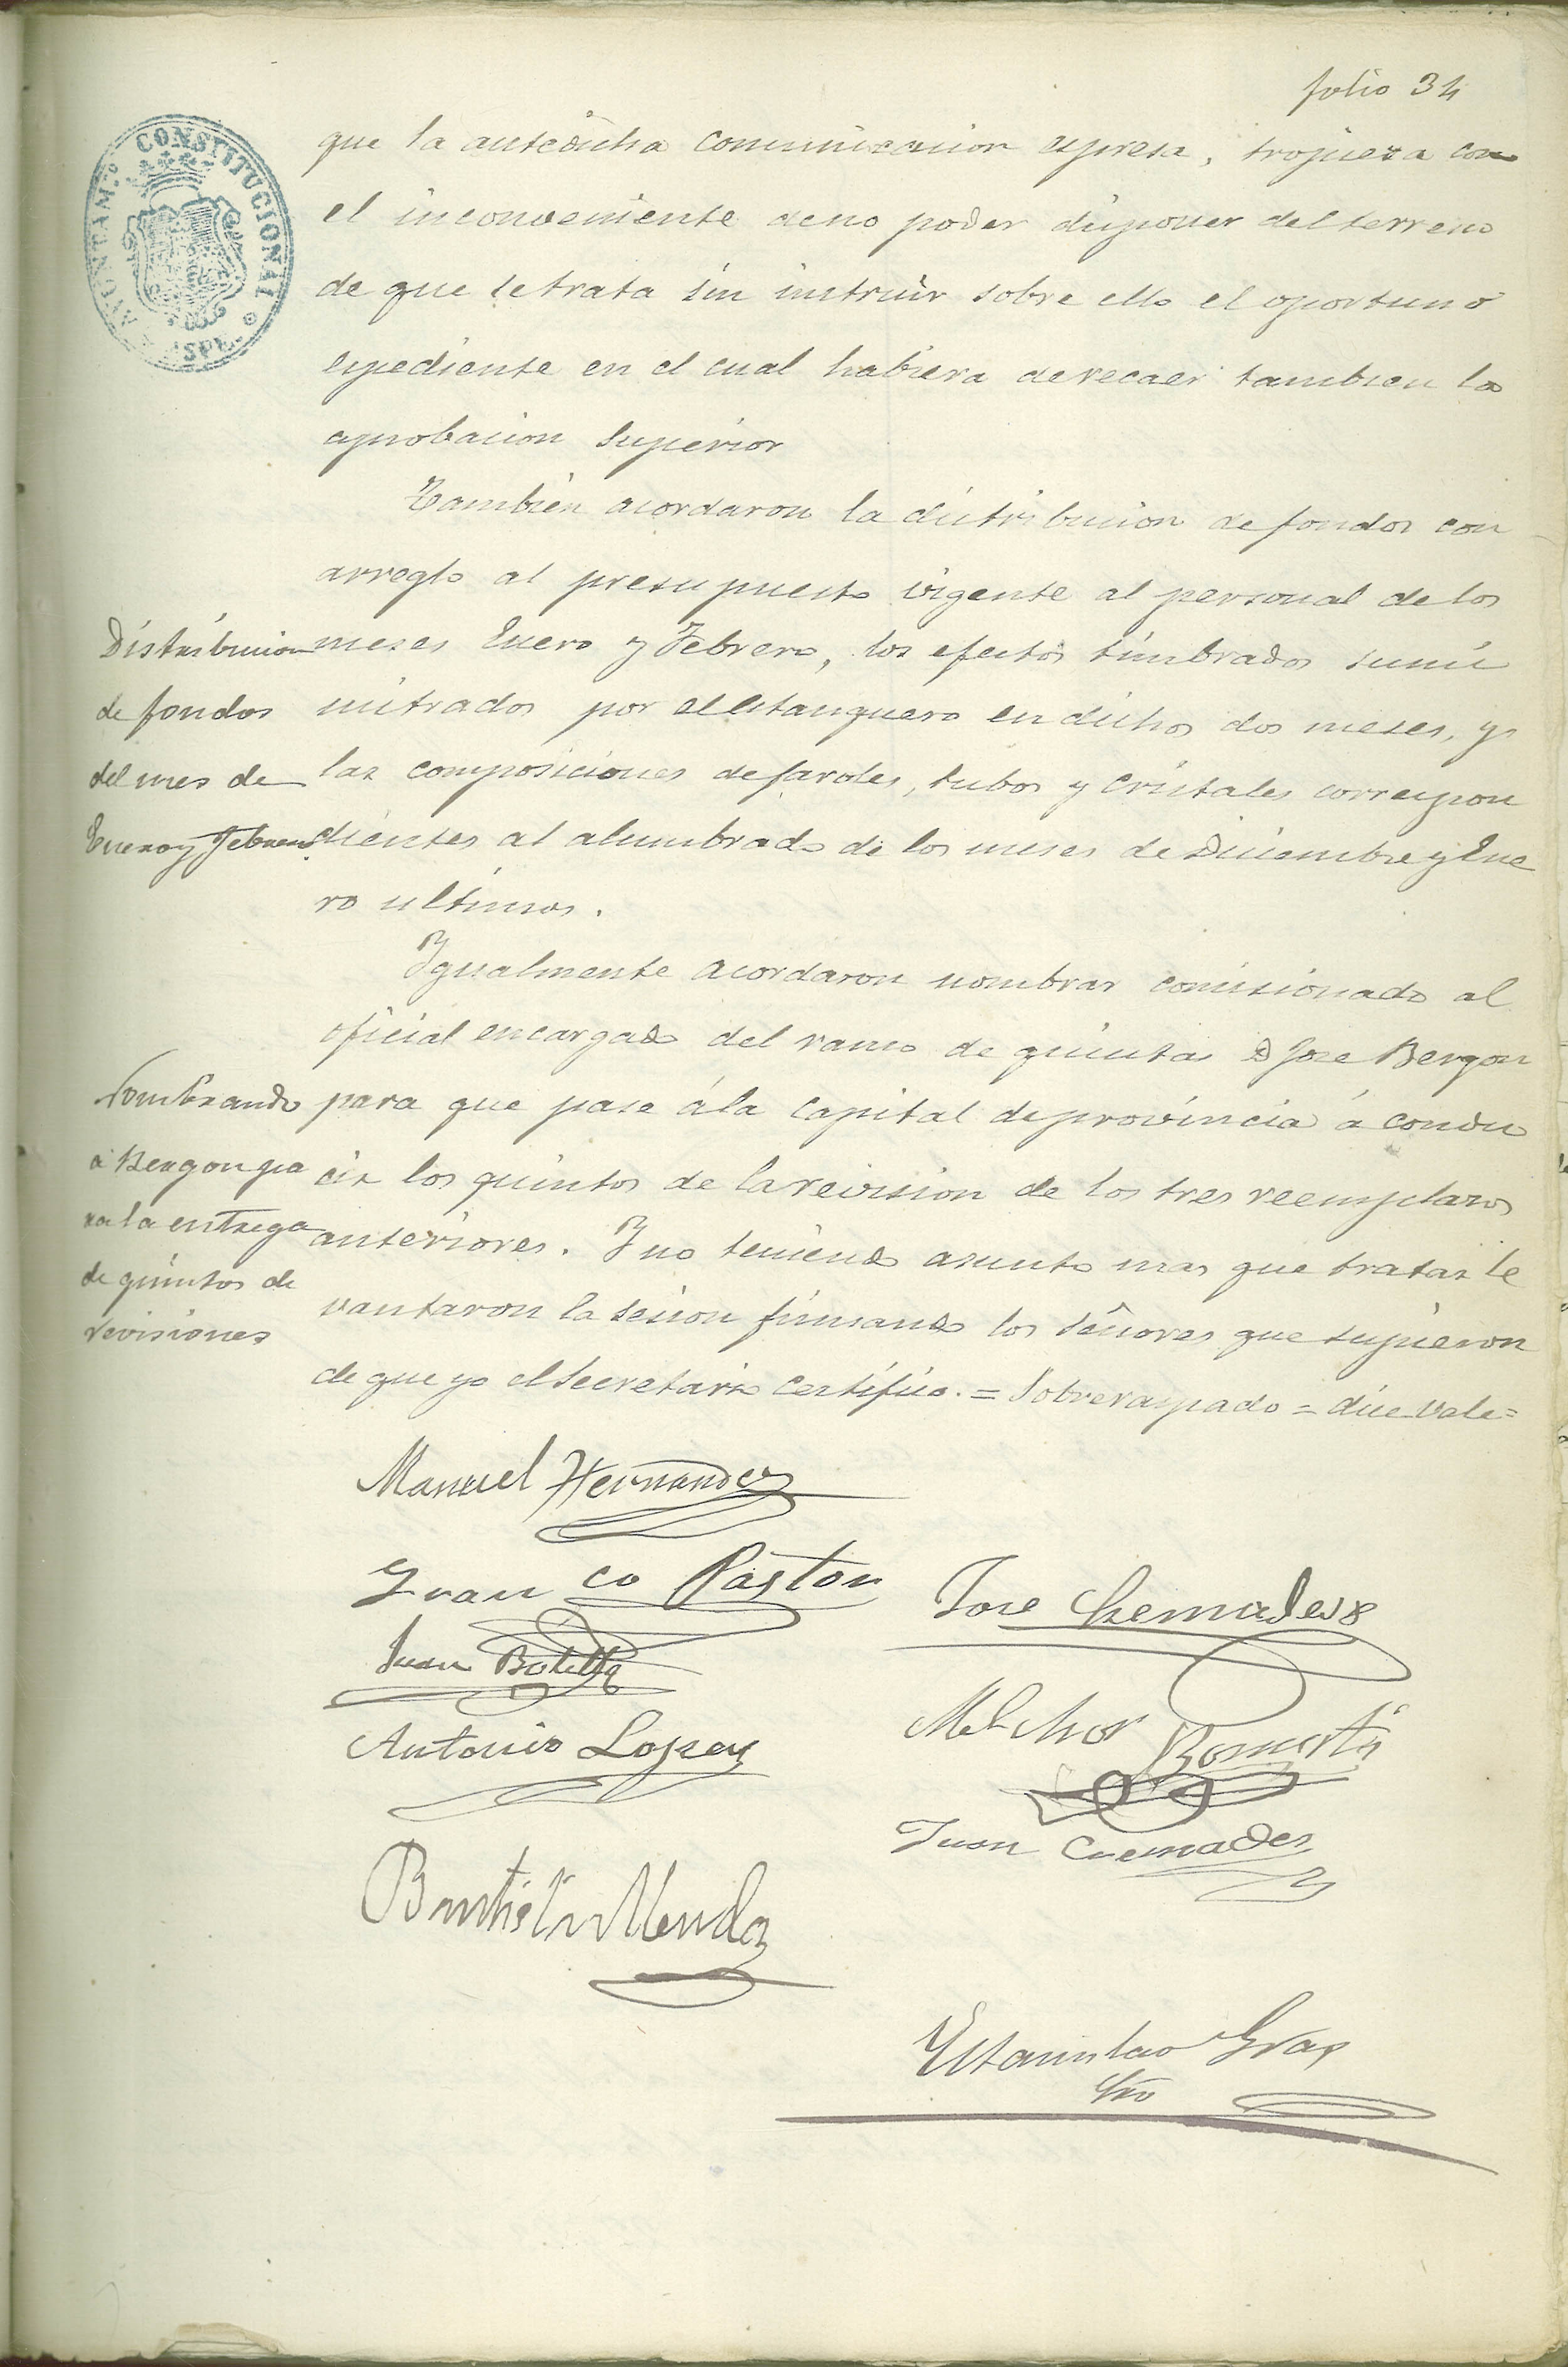 folio 34
AYUNTAM.º CONSTITUCIONAL
ASPE
que la antedicha comunicacion espresa, tropieza con
el inconveniente deno poder disponer del terreno
de que se trata sin instruir sobre ello el oportuno
espediente en el cual habiera de recaer tambien la
aprobacion superior
Tambien acordaron la distribucion de fondos con
arreglo al presupuesto vigente al personal de los
Distribucion
de fondos
del mes de
Enero y Febrero
meses Enero y Febrero, los efectos timbrados sumi
nistrados por el estanquero en dichos dos meses, y
las composiciones de faroles, tubos y cristales correspon
dientes al alumbrado de los meses de Diciembre y Ene
ro ultimos.
Igualmente acordaron nombrar comisionado al
oficial encargado del ramo de quintas D Jose Bergon
Nombrando
á Bergon pa
ra la entrega
de quintos de
revisiones
para que pase á la capital de provincia á condu
cir los quintos de la revision de los tres reemplazos
anteriores. Y no teniendo asunto mas que tratar le
vantaron la sesion firmando los señores que supieron
de que yo el Secretario certifico. = Sobreraspado = dice vale =
Manuel Hernandez
Fran co Pastor
Jose Cremades
Juan Botella
Melchor
Antonio Lopez
Juan Cremades
Bautista
Estanislao Gras
Srio